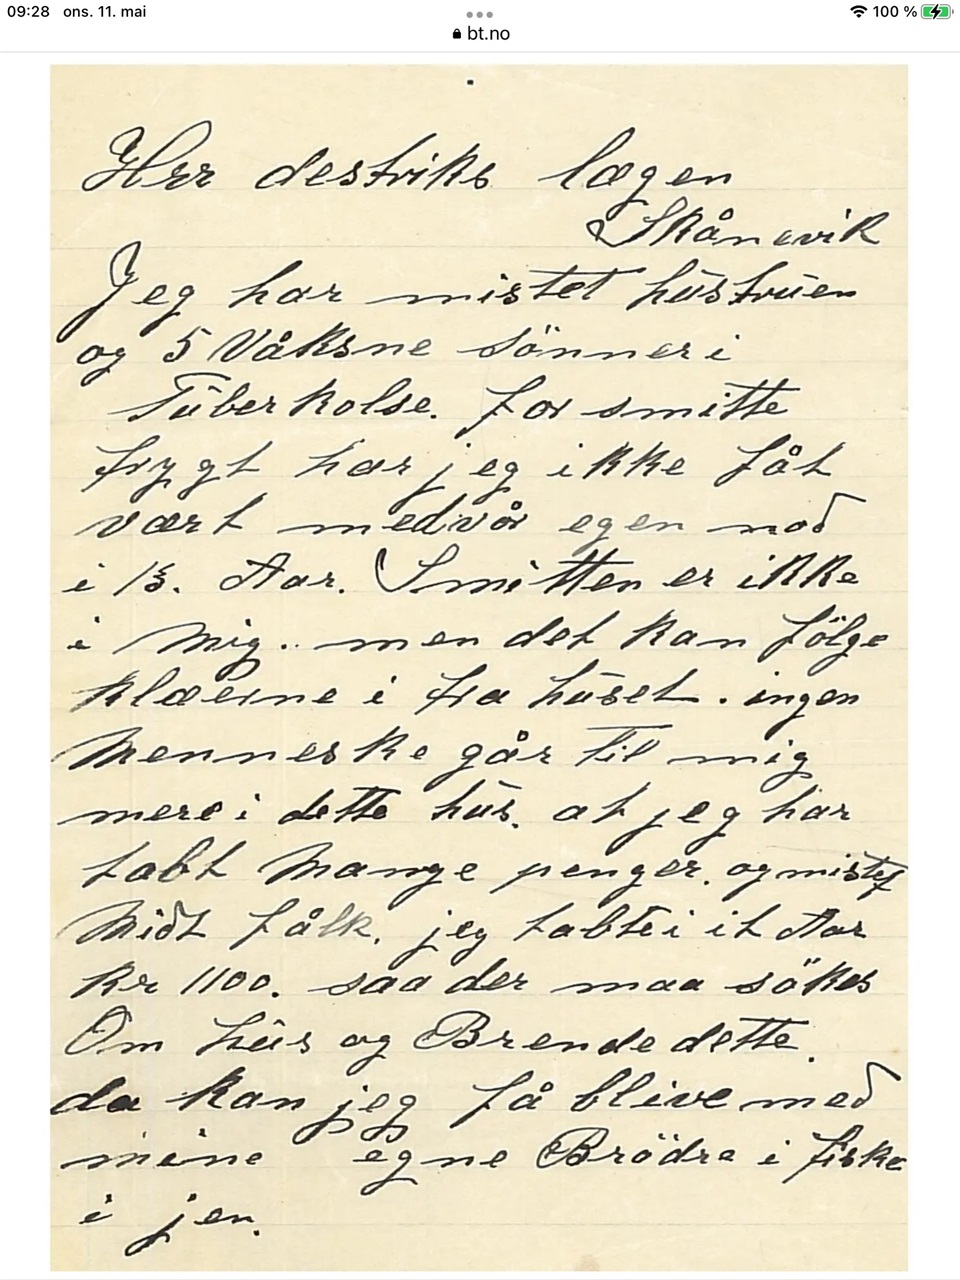 09:28 ons. 11. mai
100 %
bt.no
Herr destriks lægen
Skånevik
Jeg har mistet hustruen
og 5 Våksne sönner i
Tuberkolse. for smitte
frygt har jeg ikke fåt
vært med vår egen mad
i 13. Aar. Smitten er ikke
i Mig.. men det kan fölge
klæerne i fra huset. ingen
Menneske går til mig
mere i dette hus. at jeg har
tabt Mange penger. og mistet
Midt fålk. jeg tabte i it Aar
Kr 1100. saa der maa sökes
Om hus og Brende dette.
da kan jeg få blive med
mine egne Brödre i fiske
i jen.